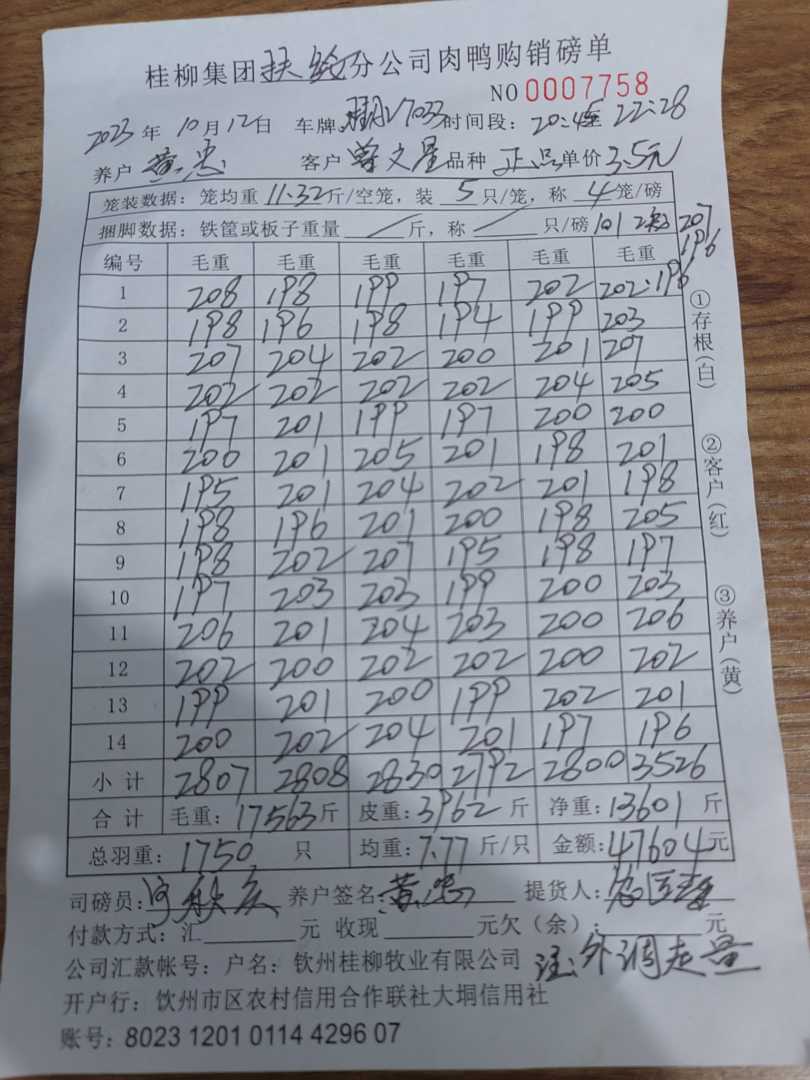 桂柳集团扶绥分公司肉鸭购销磅单
NO 0007758
2023年10月12日 车牌 翔N27033 时间段：20:4至22:28
养户 黄忠 客户 曾文星 品种 正品 单价 3.5元
笼装数据：笼均重 11.32 斤/空笼，装 5 只/笼，称 4 笼/磅
捆脚数据：铁筐或板子重量 / 斤，称 / 只/磅 101 207
196
编号 毛重 毛重 毛重 毛重 毛重 毛重
1 208 198 199 197 202 202 196
2 198 196 198 194 199 203
3 207 204 202 200 201 207
4 202 202 202 202 204 205
5 197 201 199 197 200 200
6 200 201 205 201 198 201
7 195 201 204 202 201 198
8 198 196 201 200 198 205
9 198 202 207 195 198 197
10 197 203 203 199 200 203
11 206 201 204 203 200 206
12 202 200 202 202 200 202
13 199 201 200 199 202 201
14 200 202 204 201 197 196
小计 2807 2808 2830 2792 2800 3526
合计 毛重：17563斤 皮重：3962斤 净重：13601斤
总羽重：1750只 均重：7.77斤/只 金额：47604元
司磅员： 养户签名：黄忠 提货人：
付款方式：汇 元 收现 元欠（余）： 元
公司汇款帐号：户名：钦州桂柳牧业有限公司 注：外调走量
开户行：钦州市区农村信用合作联社大垌信用社
账号：8023 1201 0114 4296 07
①存根（白）
②客户（红）
③养户（黄）